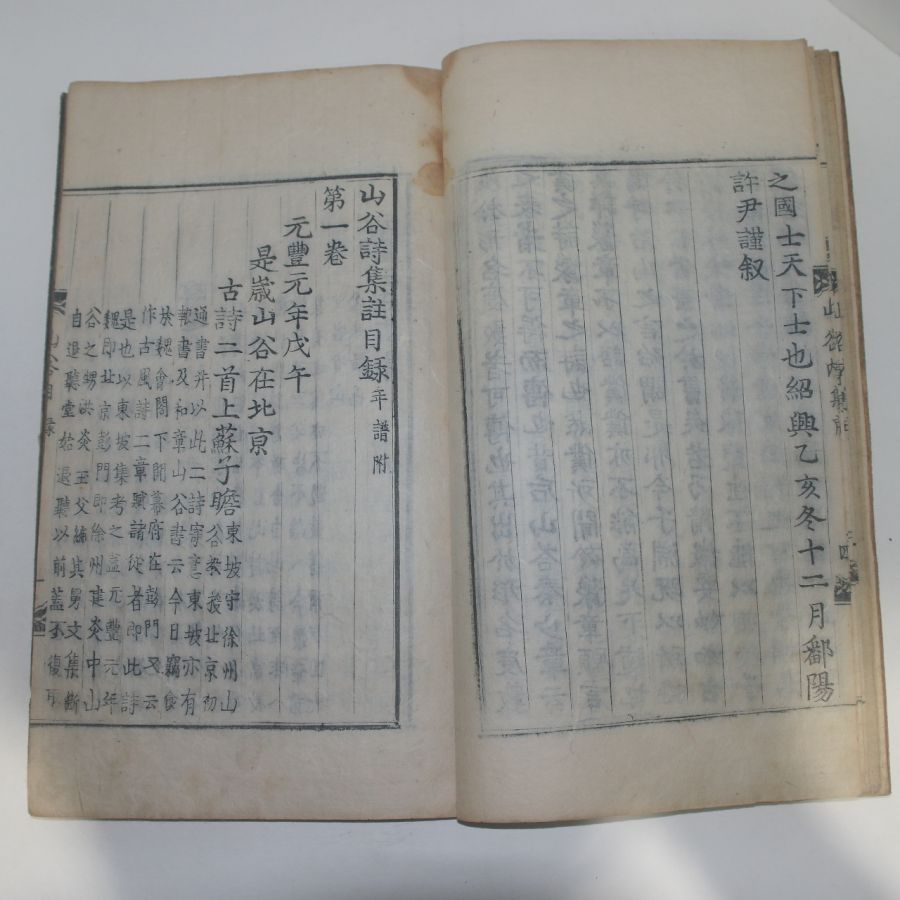 之國士天下士也紹興乙亥冬十二月鄱陽
許尹謹叙
山谷詩集註目録年譜附
第一卷
元豐元年戊午
是歲山谷在北京
古詩二首上蘇子瞻
東坡守徐州山
谷教授北京初
通書并以此二詩寄意東坡亦有
報書及和章山谷書云今日竊食
於魏會閤下開幕府在彭門又云
作古風詩二章賦諸從者即此詩
是也以東坡集考之蓋元豐元年
魏即北京彭門即徐州建炎中山
谷之甥洪炎玉父編其舅文集斷
自退聽堂始退聽以前蓋不復